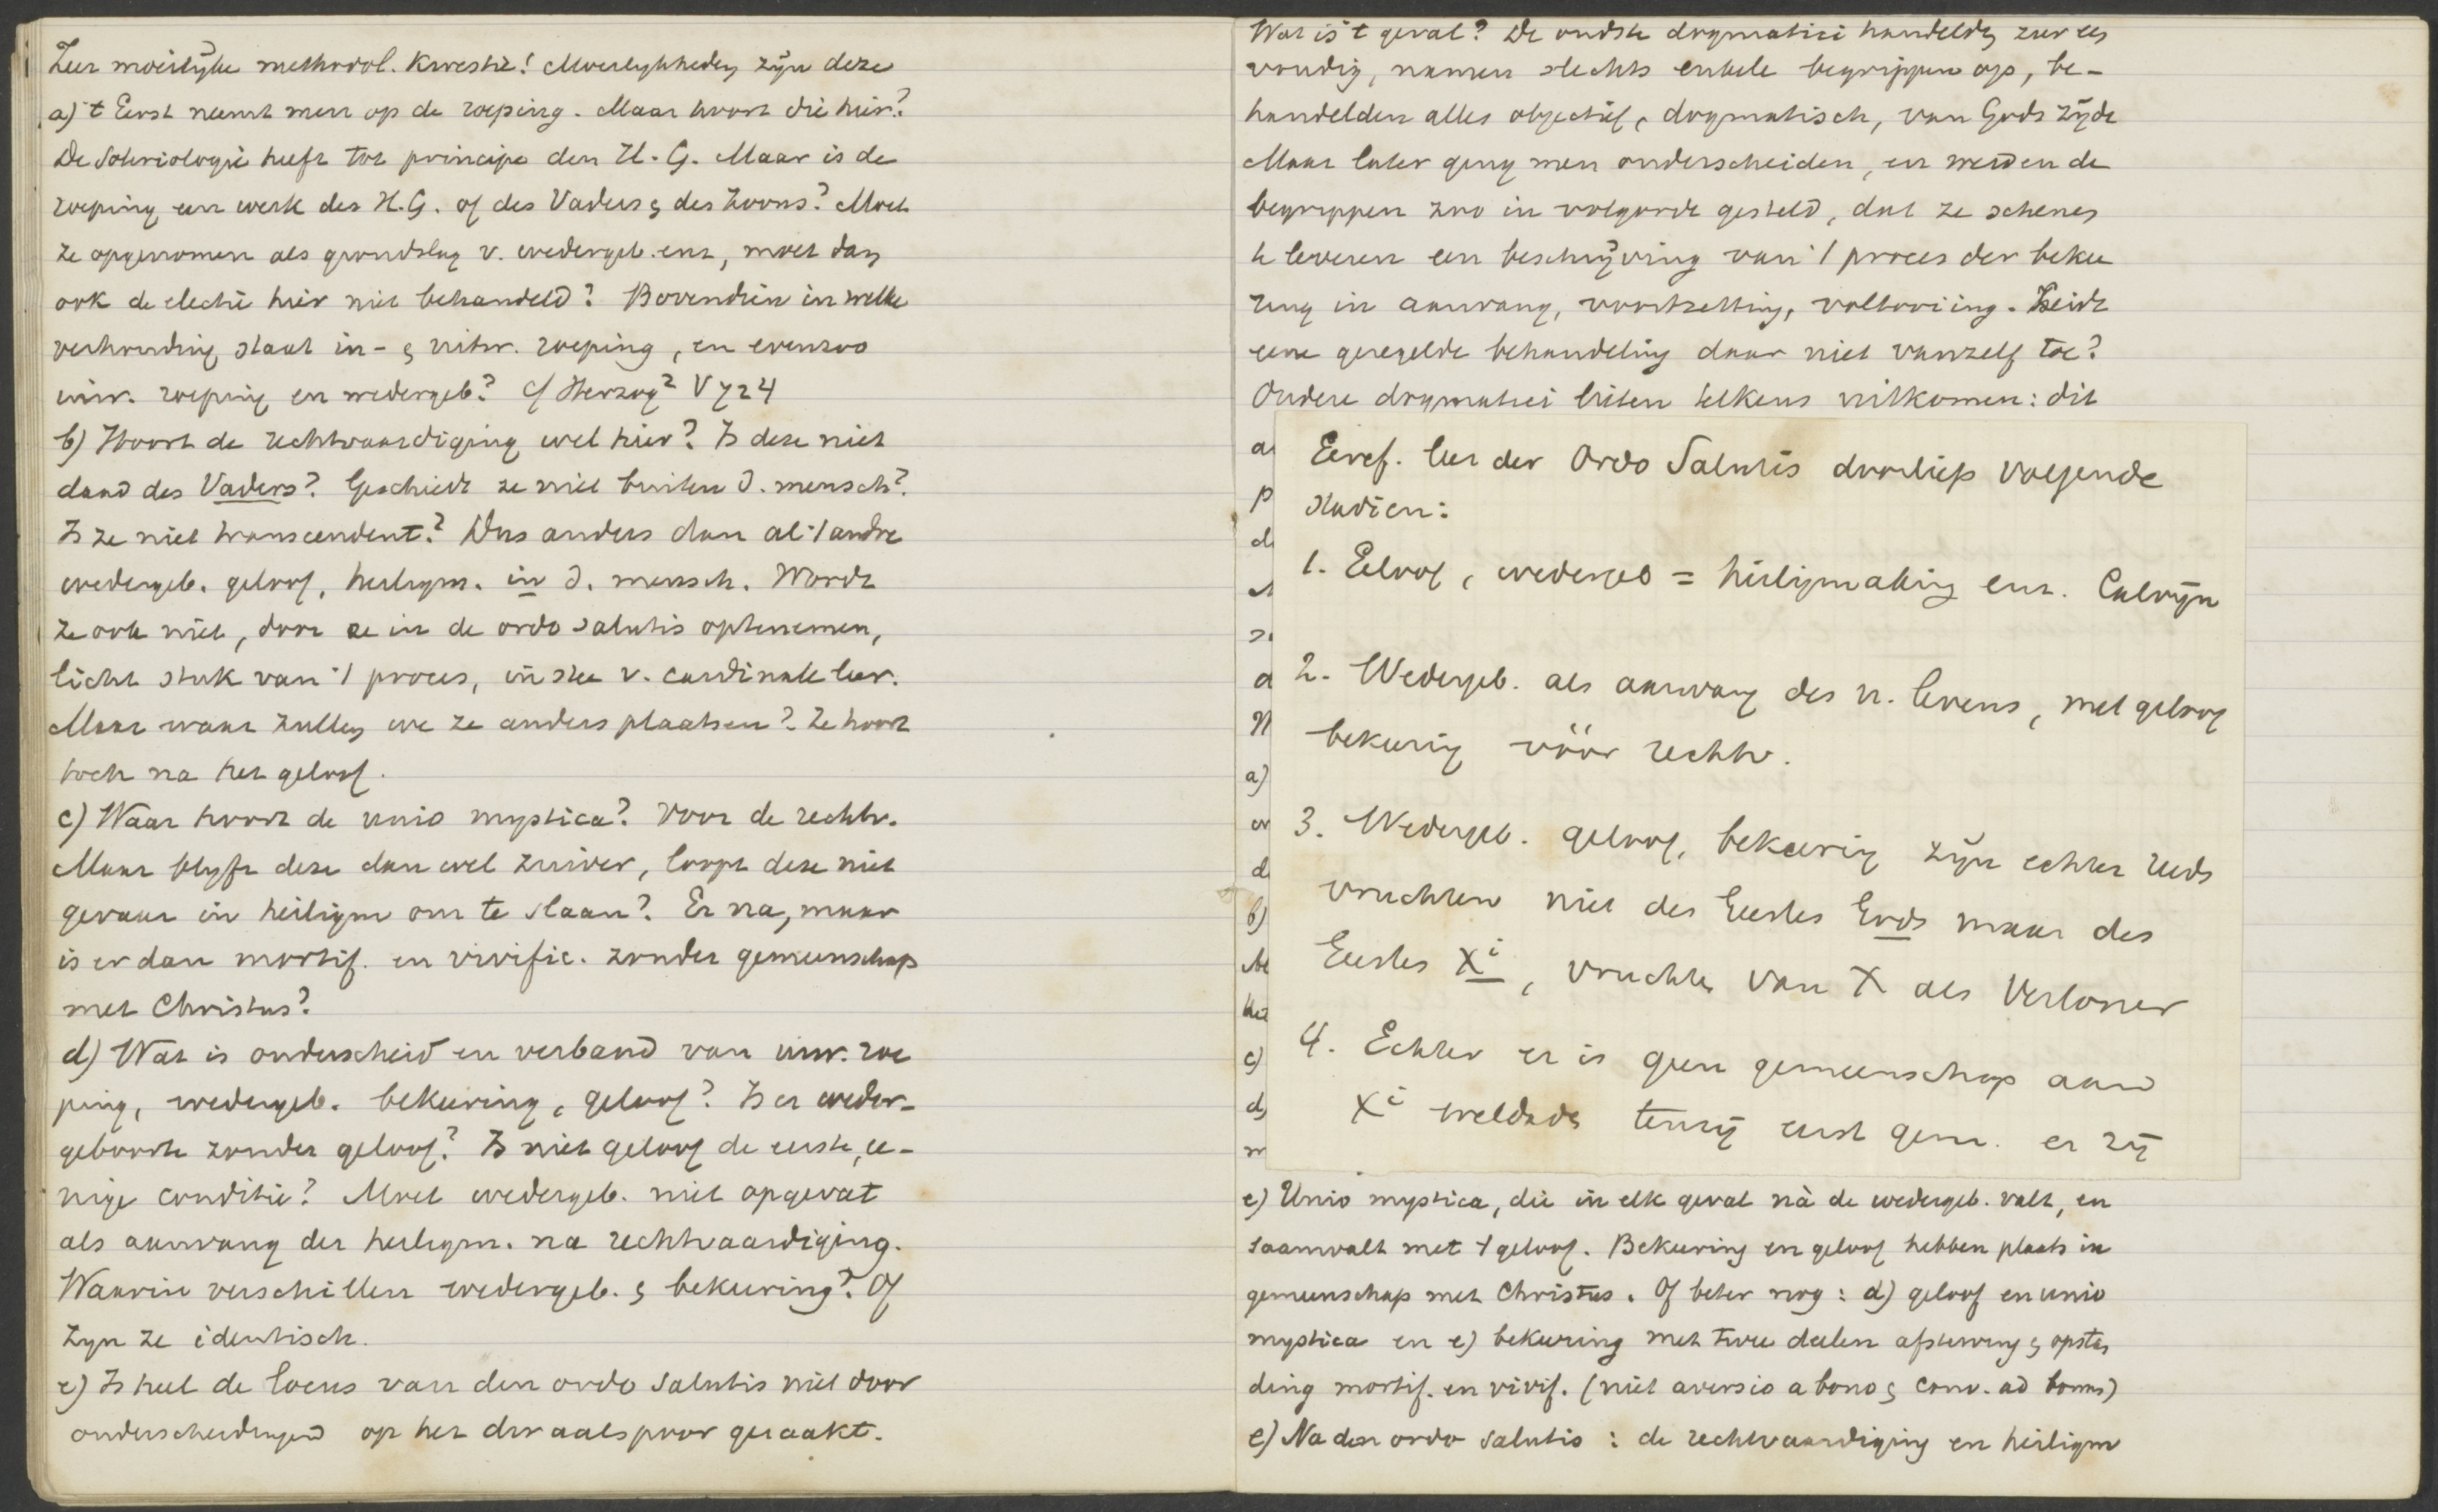 Zeer moeilijke methodol. kwestie! Moeilykheden zijn deze
a) 't Eerst neemt men op de roeping. Maar hoort die hier?
De Soteriologie heeft tot principe den H. G. Maar is de
roeping een werk des H.G. of des Vaders & des Zoons? Moet
ze opgenomen als grondslag v. wedergeb. enz, moet dan
ook de electie hier niet behandeld? Bovendien in welke
verhouding staat in- & uitw. roeping, en evenzoo
inw. roeping en wedergeb? cf Herzog² V 724
b) Hoort de rechtvaardiging wel hier? Is deze niet
daad des Vaders? Geschiedt ze niet buiten d. mensch?
Is ze niet transcendent? Dus anders dan al 't andre
wedergeb. geloof, heiligm. in d. mensch. Wordt
ze ook niet, door ze in de ordo salutis optenemen,
licht stuk van 't proces, in stee v. cardinale leer.
Maar waar zullen we ze anders plaatsen? Ze hoort
toch na het geloof.
c) Waar hoort de unio mystica? Voor de rechtv.
Maar blyft deze dan wel zuiver, loopt deze niet
gevaar in heiligm om te slaan? Er na, maar
is er dan mortif. en vivific. zonder gemeenschap
met Christus?
d) Wat is onderscheid en verband van inw. roe
ping, wedergeb. bekeering, geloof? Is er weder-
geboorte zonder geloof? Is niet geloof de eerste, ee-
nige conditie? Moet wedergeb. niet opgevat
als aanvang der heiligm. na rechtvaardiging.
Waarin verschillen wedergeb. & bekeering? Of
zyn ze identisch.
e) Is heel de locus van den ordo salutis niet door
onderscheidingen op het dwaalspoor geraakt.
Wat is 't geval? De oudste dogmatici handelden zeer een
voudig, namen slechts enkele begrippen op, be-
handelden alles objectief, dogmatisch, van Gods zijde
Maar later ging men onderscheiden, en werden de
begrippen zoo in volgorde gesteld, dat ze schenen
te leveren een beschrijving van 't proces der bekee
ring in aanvang, voortzetting, voltooiing. Leidt
eene geregelde behandeling daar niet vanzelf toe?
Oudere dogmatici lieten telkens uitkomen: dit
Geref. leer der Ordo Salutis doorliep volgende
stadien:
1. Geloof, wedergeb = heiligmaking enz. Calvijn
2. Wedergeb. als aanvang des n. levens, met geloof
bekeering vóór rechtv.
3. Wedergeb. geloof, bekeering zijn echter reeds
vruchten niet des Geestes Gods maar des
Geestes Xi, vruchten van X als Verlosser
4. Echter er is geen gemeenschap aan d
Xi weldaden tenzij eerst gem. er zij
a)
b)
c)
d)
e) Unio mystica, die in elk geval nà de wedergeb. valt, en
saamvalt met 't geloof. Bekeering en geloof hebben plaats in
gemeenschap met Christus. Of beter nog: d) geloof en unio
mystica en e) bekeering met twee deelen afsterving & opstan
ding mortif. en vivif. (niet aversio a bono & conv. ad bonus)
e) Na den ordo salutis: de rechtvaardiging en heiligm